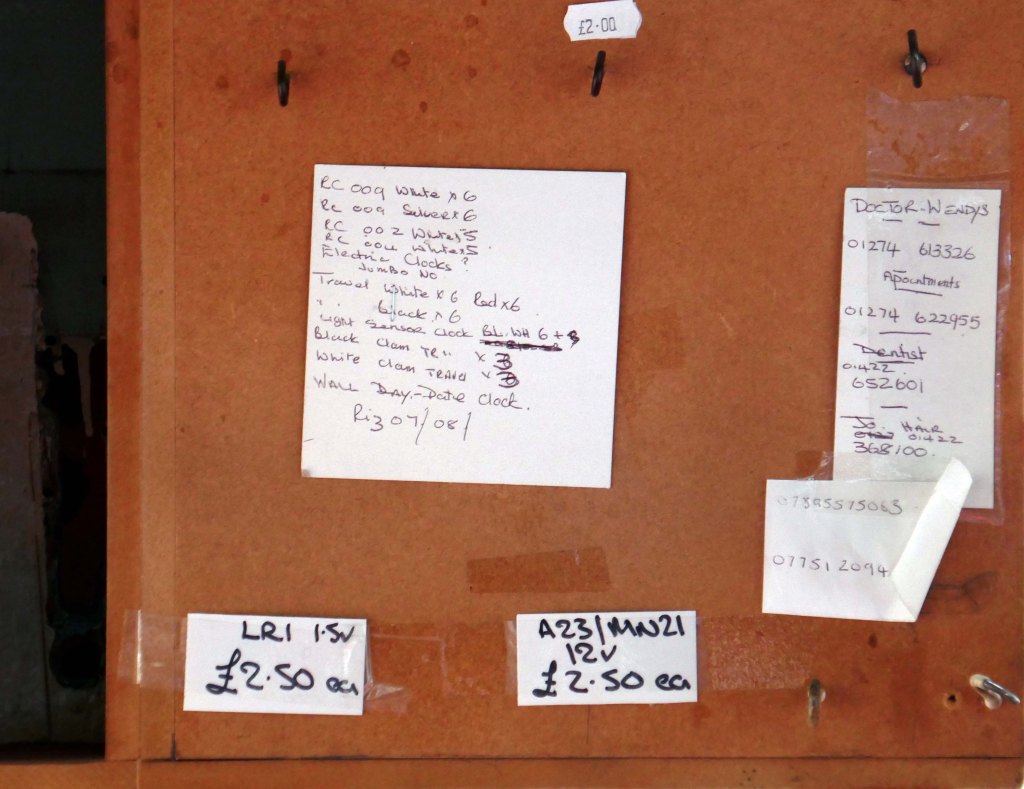 £2.00
RC 009 White x 6
RC 009 Silver x 6
RC 002 White x 5
RC 004 White x 5
Electric Clocks ?
Jumbo No
Travel White x 6 Red x 6
" Black x 6
Light Sensor Clock BL. WH 6 +
Black Clam TR " x 3
White Clam TRAVEL x
WALL DAY.-Date Clock.
07/08/
DOCTOR-WENDYS
01274 613326
Apointments
01274 622955
Dentist
01422
652601
JO. HAIR
01422
368100.
077512094
LR1 1.5v
£2.50 ea
A23/MN21
12v
£2.50 ea